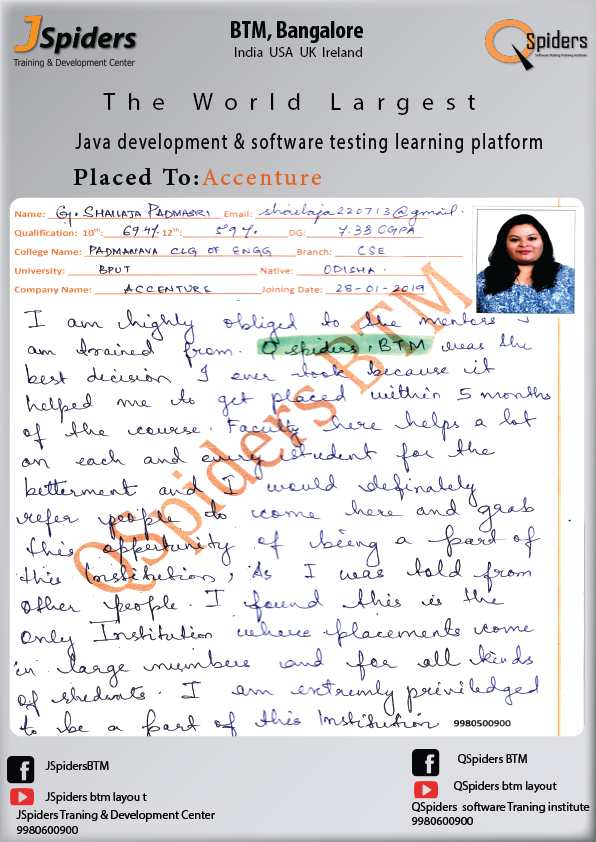 JSpiders
Training & Development Center
BTM, Bangalore
India USA UK Ireland
QSpiders
Software Testing Training Institute
The World Largest
Java development & software testing learning platform
Placed To:Accenture
Name: Gy. SHAILAJA PADMASRI Email: shailaja220713@gmail.
Qualification: 10th: 69.4% 12th: 59% DG: 7.33 CGPA
College Name: PADMANAVA CLG OF ENGG Branch: CSE
University: BPUT Native: ODISHA.
Company Name: ACCENTURE Joining Date: 28-01-2019
I am highly obliged to the mentors I
am trained from. Q spiders, BTM was the
best decision I ever took because it
helped me to get placed within 5 months
of the course. Faculty here helps a lot
on each and every student for the
betterment and I would definately
refer people to come here and grab
this oppertunity of being a part of
this Institution, As I was told from
other people. I found this is the
only Institution where placements come
in large numbers and for all kinds
of students. I am extremly priviledged
to be a part of this Institution 9980500900
QSpiders BTM
JSpidersBTM
JSpiders btm layou t
JSpiders Traning & Development Center
9980600900
QSpiders BTM
QSpiders btm layout
QSpiders software Traning institute
9980600900